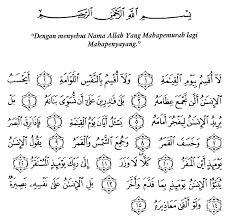 بِسْمِ اللَّهِ الرَّحْمَٰنِ الرَّحِيمِ
"Dengan menyebut Nama Allah Yang Mahapemurah lagi
Mahapenyayang."
لَا أُقْسِمُ بِيَوْمِ الْقِيَٰمَةِ ﴿١﴾ وَلَا أُقْسِمُ بِالنَّفْسِ اللَّوَّامَةِ ﴿٢﴾ أَيَحْسَبُ
الْإِنسَٰنُ أَلَّن نَّجْمَعَ عِظَامَهُ ﴿٣﴾ بَلَىٰ قَٰدِرِينَ عَلَىٰ أَن نُّسَوِّيَ بَنَانَهُ ﴿٤﴾ بَلْ
يُرِيدُ الْإِنسَٰنُ لِيَفْجُرَ أَمَامَهُ ﴿٥﴾ يَسْـَٔلُ أَيَّانَ يَوْمُ الْقِيَٰمَةِ ﴿٦﴾ فَإِذَا بَرِقَ الْبَصَرُ
﴿٧﴾ وَخَسَفَ الْقَمَرُ ﴿٨﴾ وَجُمِعَ الشَّمْسُ وَالْقَمَرُ ﴿٩﴾ يَقُولُ الْإِنسَٰنُ
يَوْمَئِذٍ أَيْنَ الْمَفَرُّ ﴿١٠﴾ كَلَّا لَا وَزَرَ ﴿١١﴾ إِلَىٰ رَبِّكَ يَوْمَئِذٍ الْمُسْتَقَرُّ ﴿١٢﴾
يُنَبَّؤُا الْإِنسَٰنُ يَوْمَئِذٍ بِمَا قَدَّمَ وَأَخَّرَ ﴿١٣﴾ بَلِ الْإِنسَٰنُ عَلَىٰ نَفْسِهِ بَصِيرَةٌ
﴿١٤﴾ وَلَوْ أَلْقَىٰ مَعَاذِيرَهُ ﴿١٥﴾